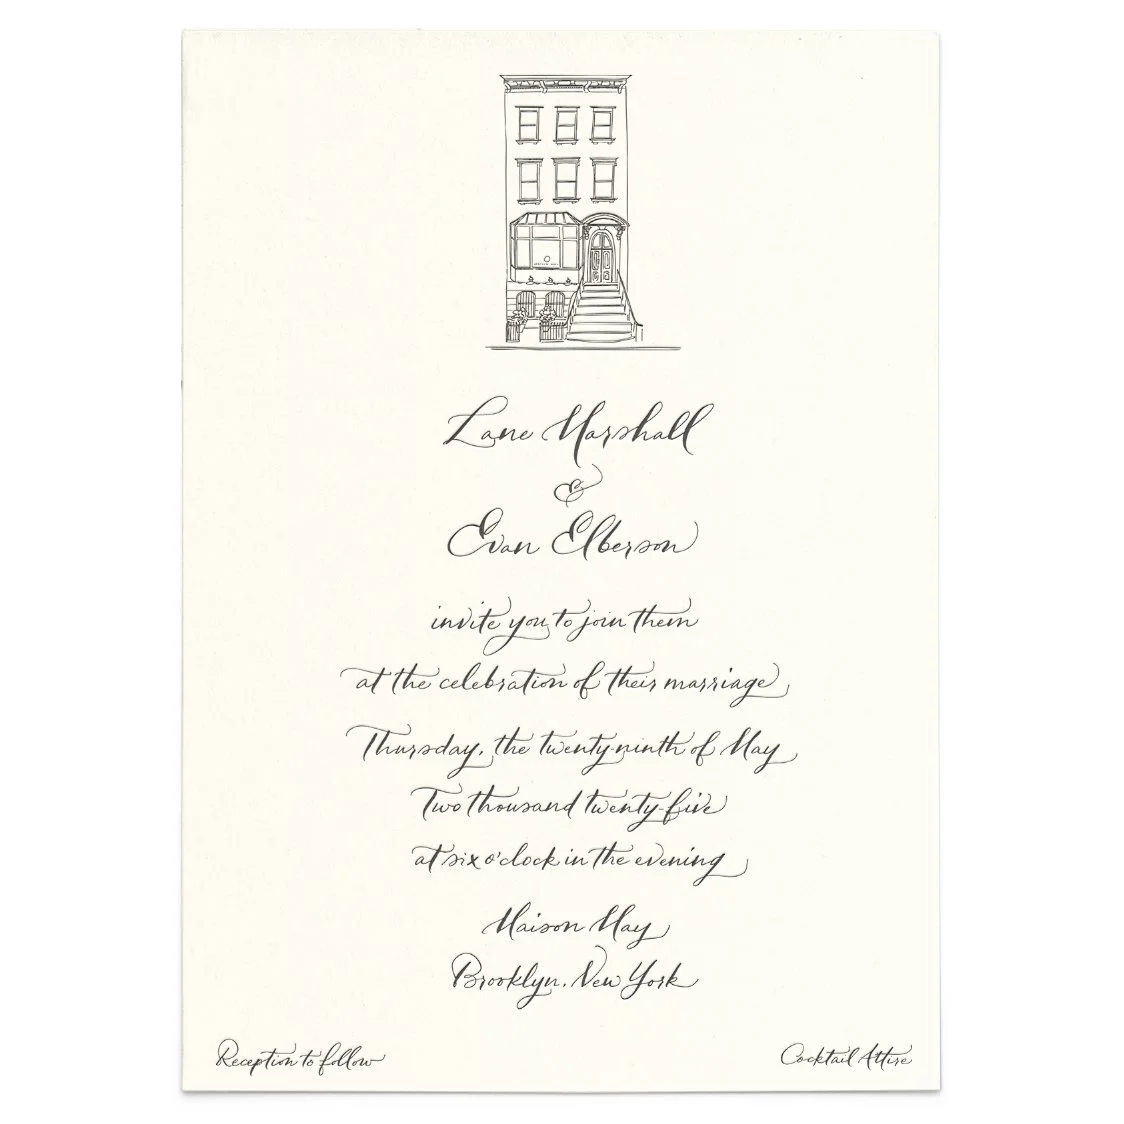 Lane Marshall
&
Evan Elberson
invite you to join them
at the celebration of their marriage
Thursday, the twenty-ninth of May
Two thousand twenty-five
at six o'clock in the evening
Maison May
Brooklyn, New York
Reception to follow
Cocktail Attire